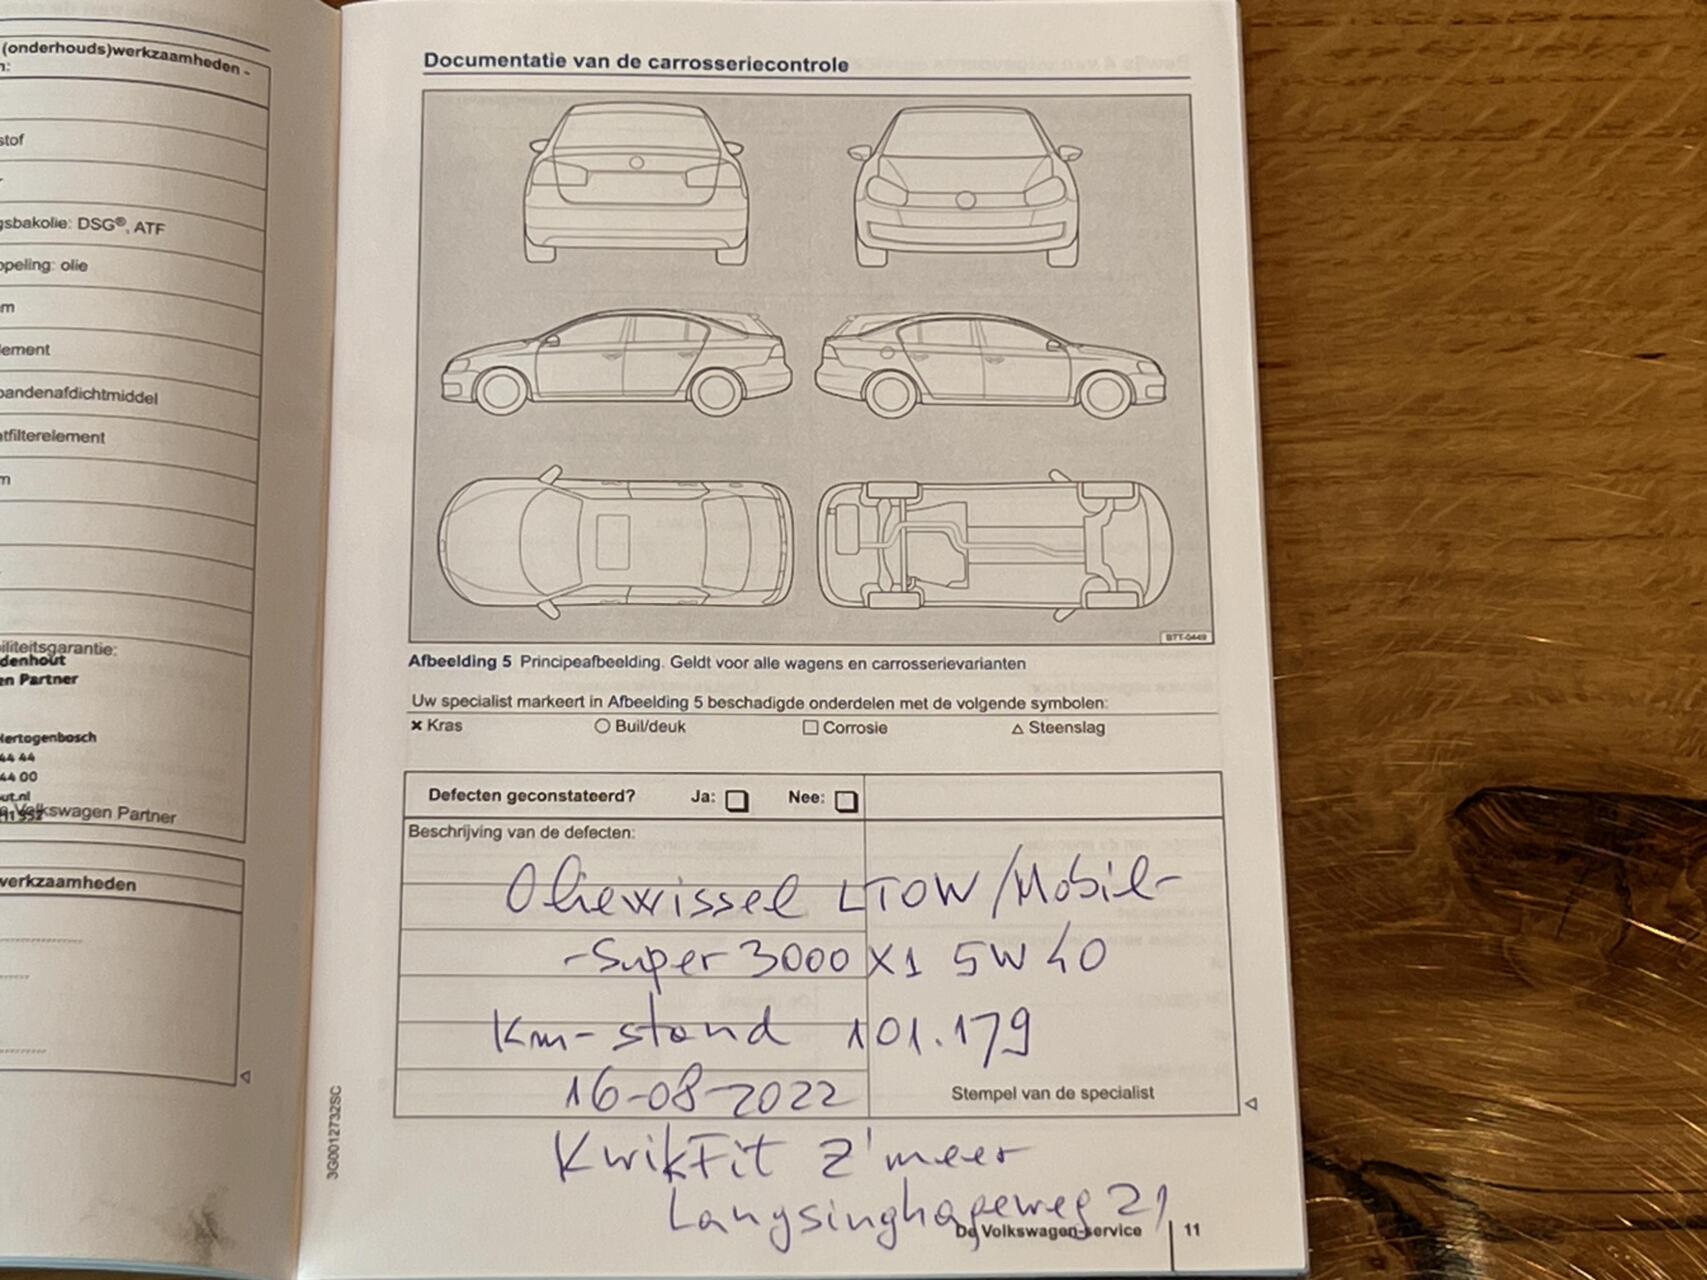 (onderhouds)werkzaamheden -
n:
stof
gsbakolie: DSG®, ATF
ppeling: olie
m
lement
bandenafdichtmiddel
tfilterelement
m
iliteitsgarantie:
denhout
en Partner
Hertogenbosch
44 44
44 00
ut.nl
Volkswagen Partner
werkzaamheden
Documentatie van de carrosseriecontrole
BTT-0449
Afbeelding 5 Principeafbeelding. Geldt voor alle wagens en carrosserievarianten
Uw specialist markeert in Afbeelding 5 beschadigde onderdelen met de volgende symbolen:
× Kras ○ Buil/deuk □ Corrosie △ Steenslag
Defecten geconstateerd? Ja: □ Nee: □
Beschrijving van de defecten:
Oliewissel LTOW/Mobil-
-Super 3000 X1 5W40
Km-stand 101.179
16-08-2022
Stempel van de specialist
KwikFit Z'meer
Langsinghageweg 21
3G0012732SC
De Volkswagen-service 11